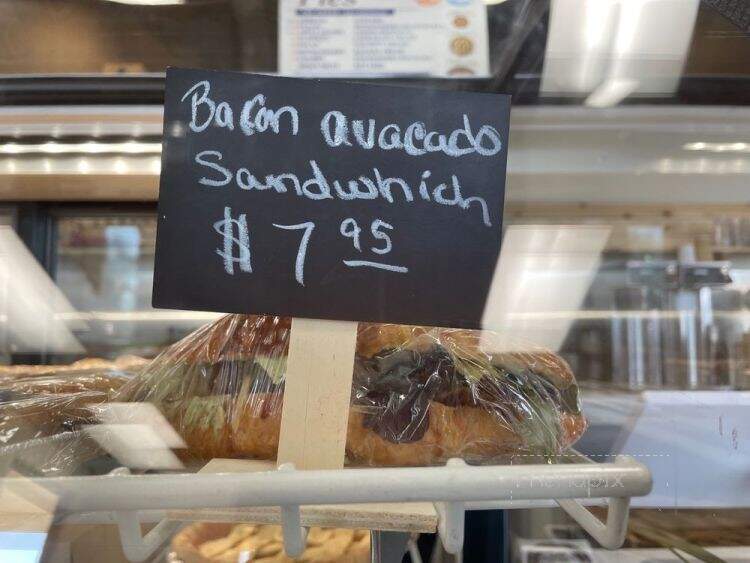 Bacon avacado
Sandwhich
$ 7 95